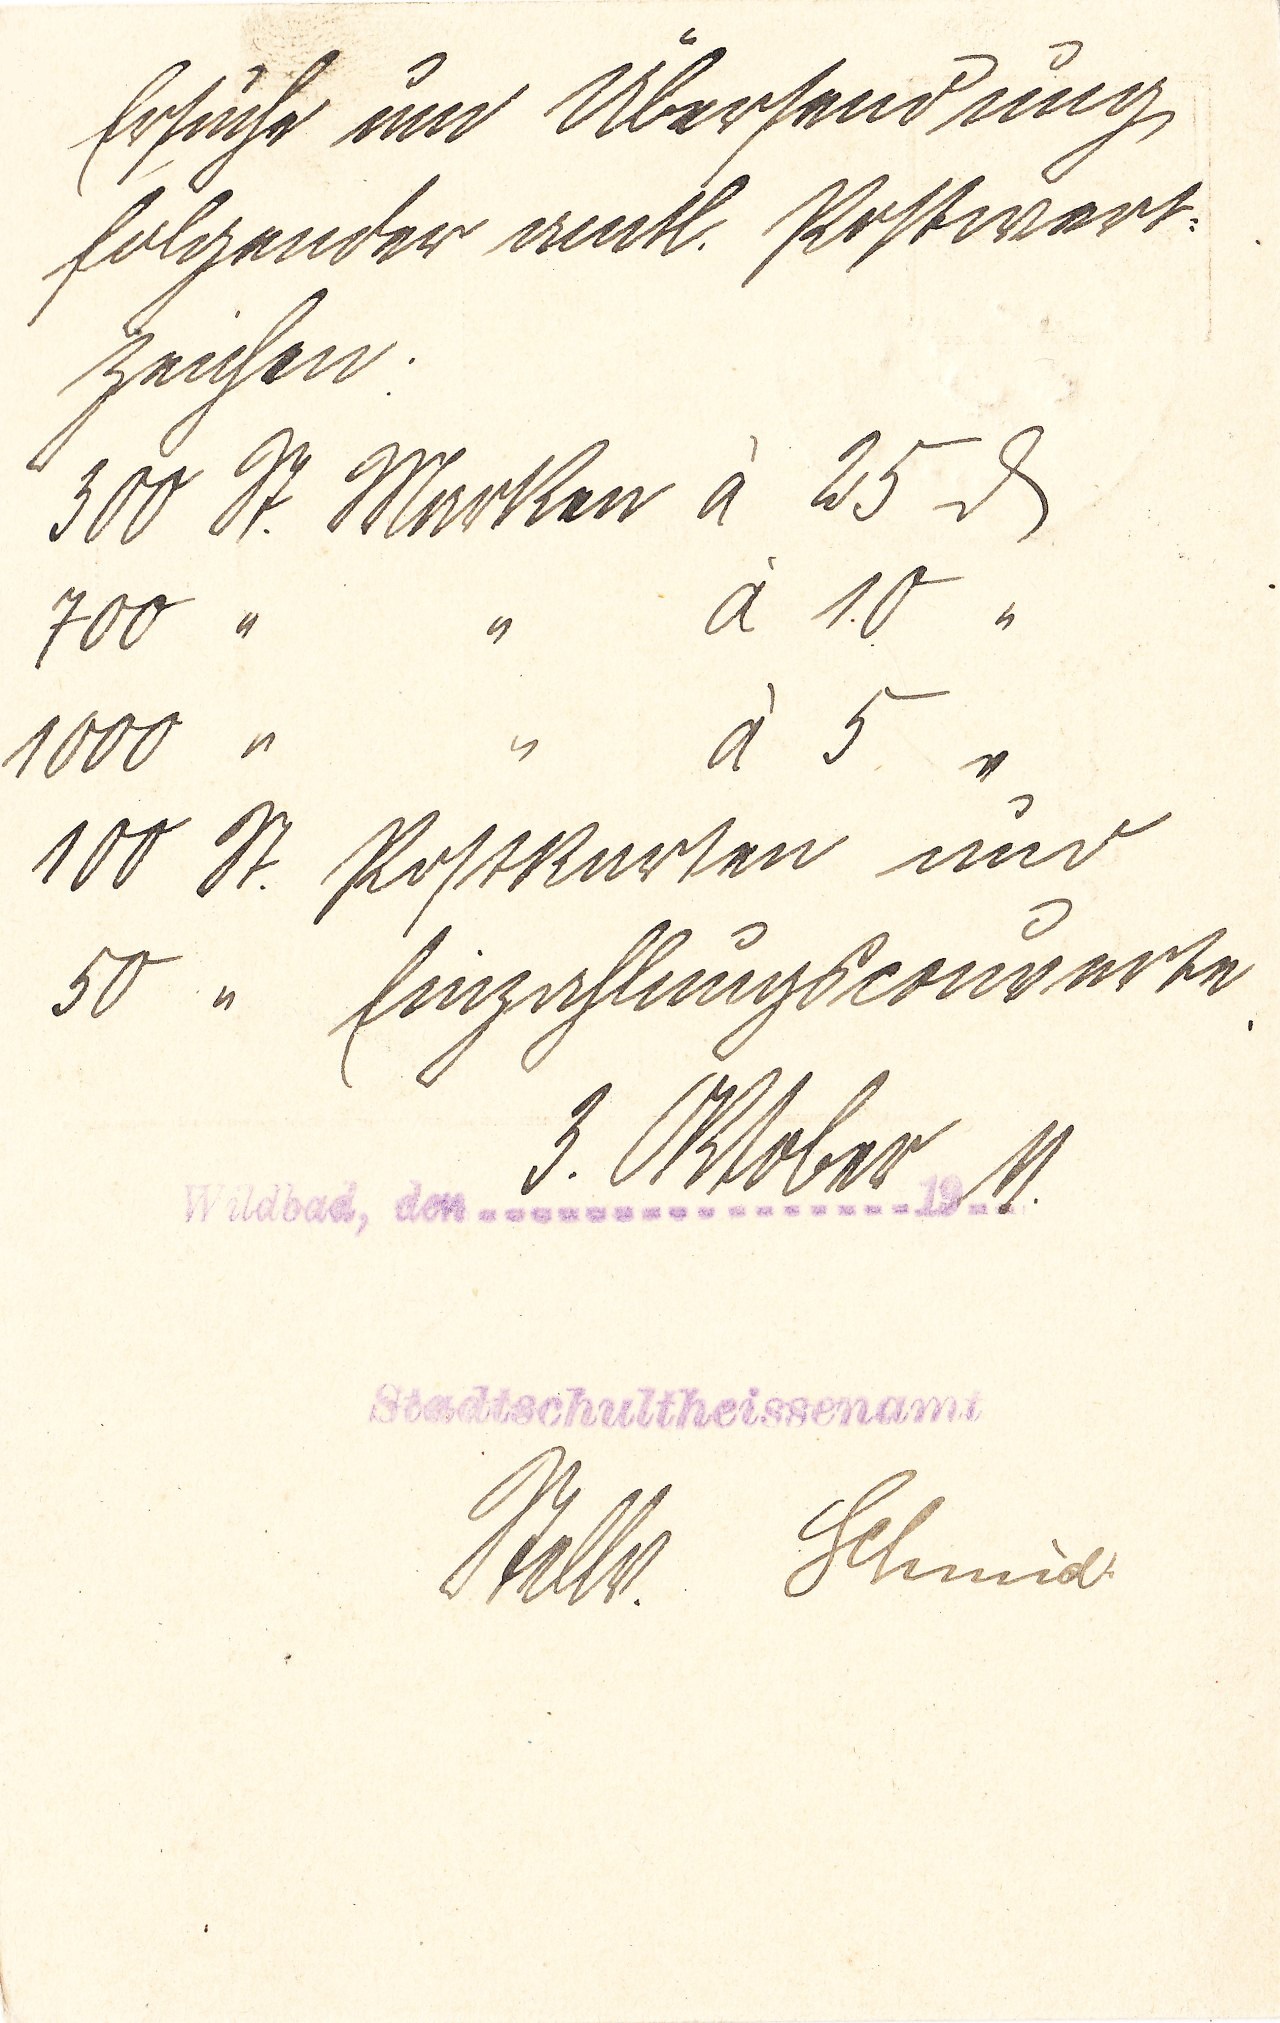 Ersuche um Übersendung
folgender amtl. Postwert-
zeichen:
300 St. Marken à 25 ₰
700 " " à 10 "
1000 " " à 5 "
100 St. Postkarten und
50 " Einzahlungscouverte.
3. Oktober 11.
Wildbad, den 19
Stadtschultheissenamt
Stellv. Schmid